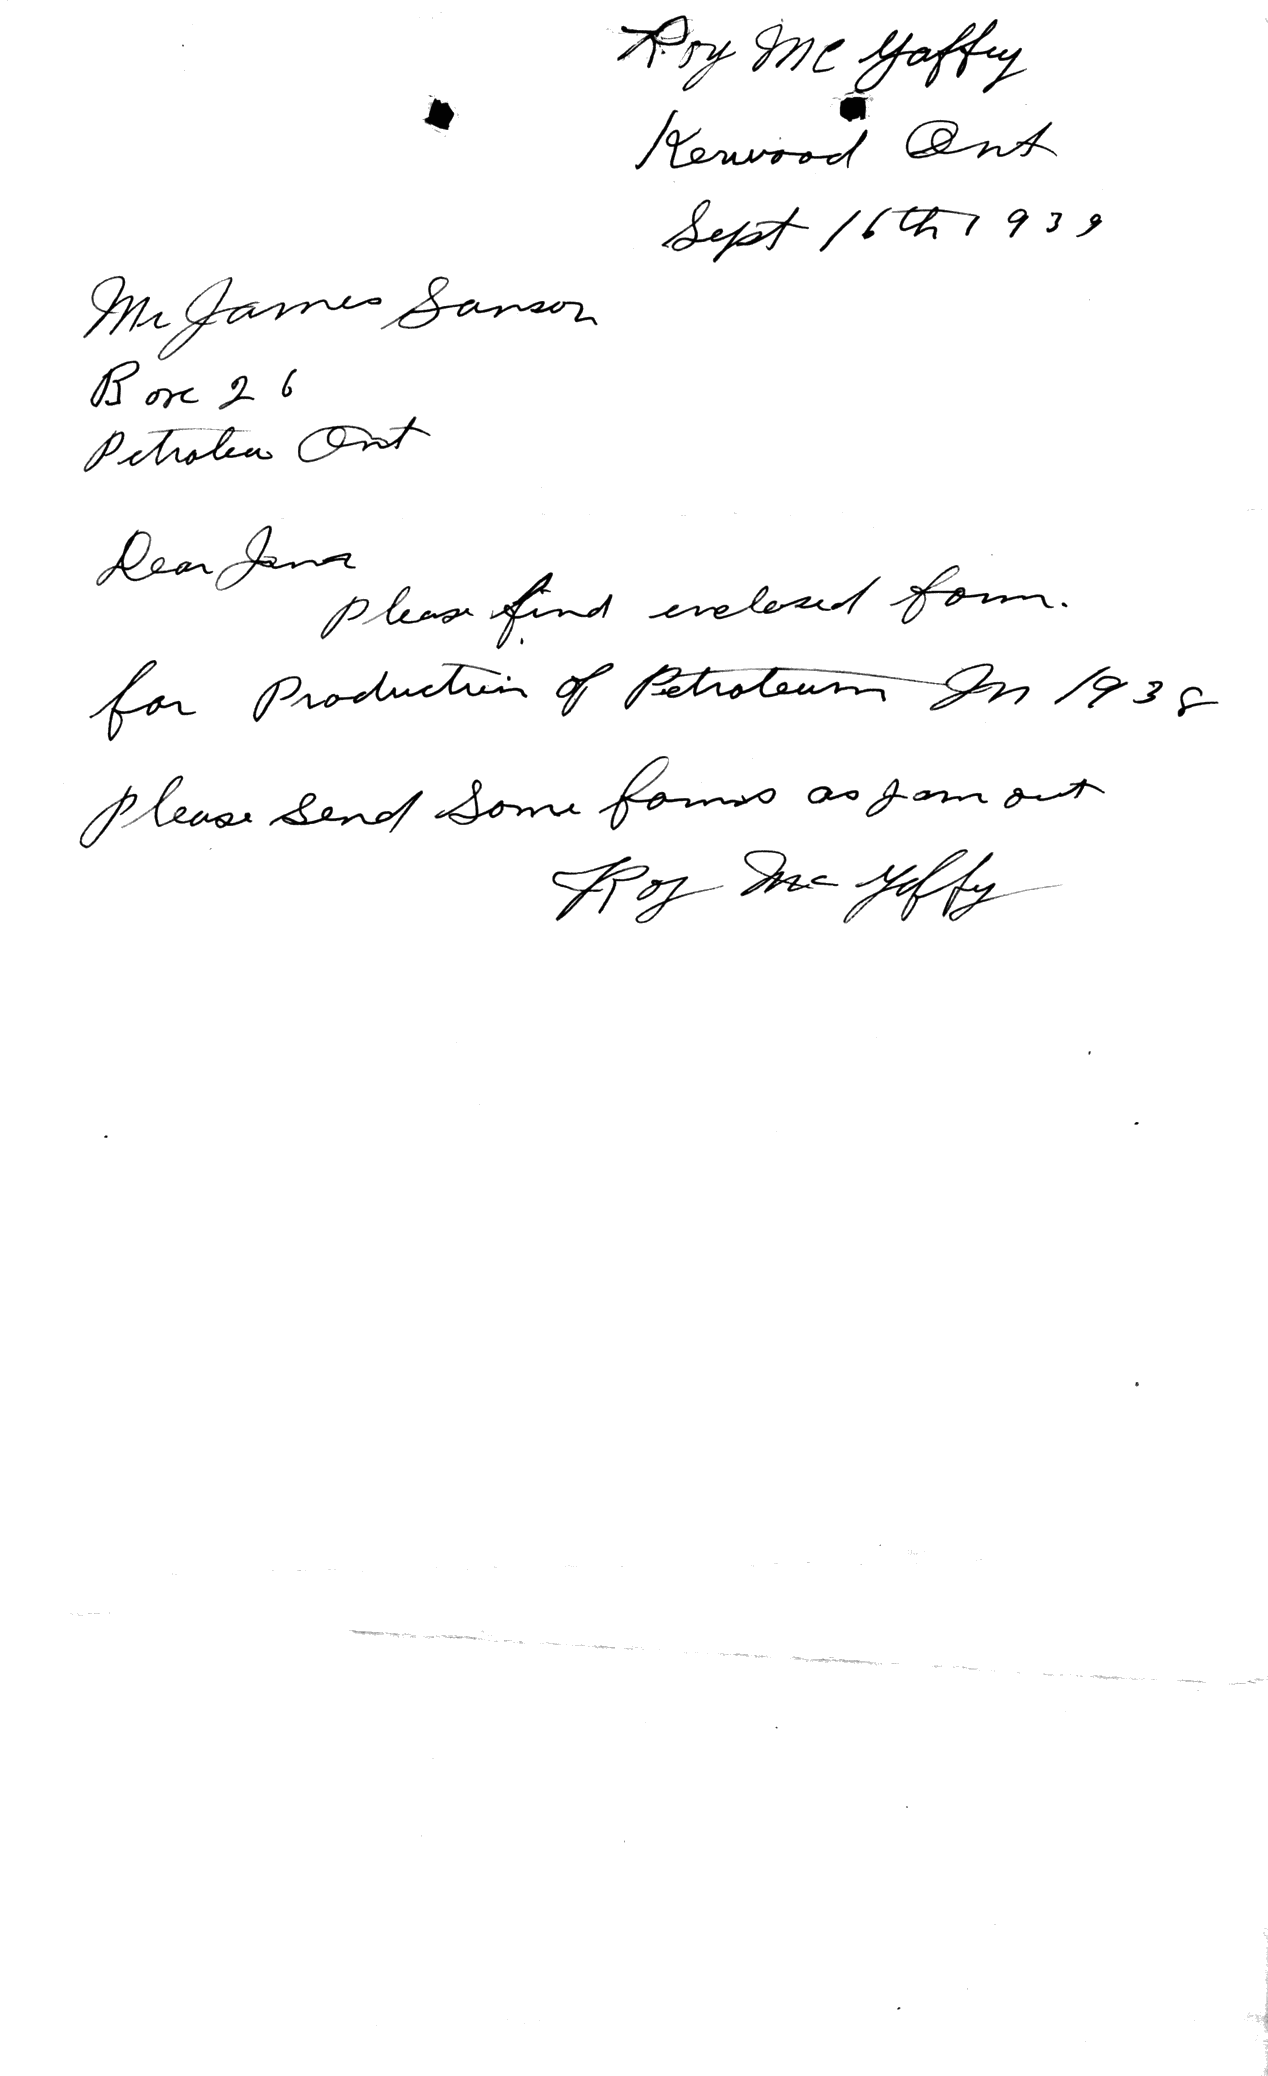 Roy Mc Gaffey
Kerwood Ont
Sept 16th 1939
Mr James Sanson
Box 26
Petrolea Ont
Dear
Please find enclosed form.
for Production of Petroleum In 1938
Please send some forms as I am out
Roy Mc Gaffy